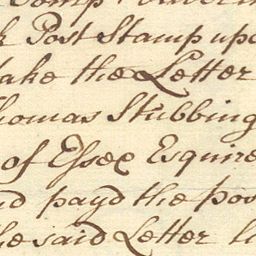 Post Stamp upo
take the Letter
homas Stubbing
of Essex Esquire
nd payd the pos
he said Letter